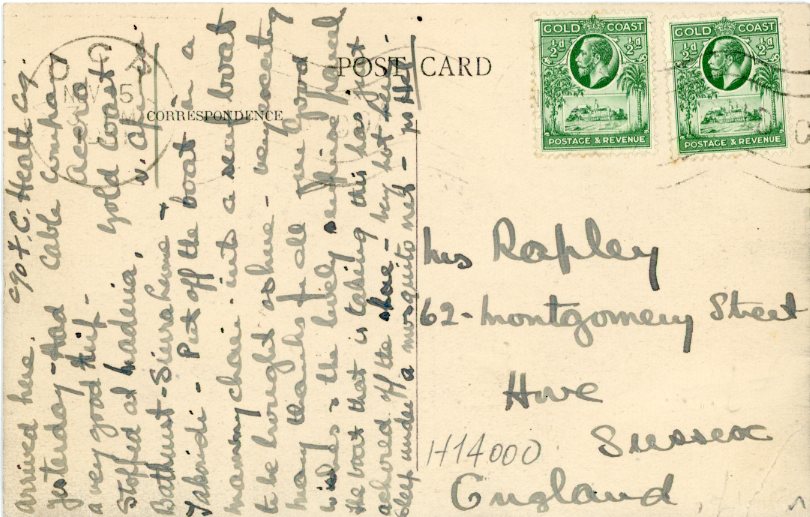 POST CARD
CORRESPONDENCE
GOLD COAST
½d ½d
POSTAGE & REVENUE
GOLD COAST
½d ½d
POSTAGE & REVENUE
NV 5
c/o F. C. Heath Esq.
Cable Company
Accra
Gold Coast
W. Africa
Arrived here
yesterday - Had
a very good trip -
Stopped at Madeira,
Bathurst - Sierra Leone &
Takoradi - Put off the boat in a
mammy chair into a surf boat
to be brought ashore - very exciting
many thanks for all your good
wishes & the lovely surprise parcel
The boat that is taking this has just
achored off the shore - very hot
Sleep under a mosquito net - no Hat
Mrs Rapley
62 - Montgomery Street
Hove
Sussex
England
H14000